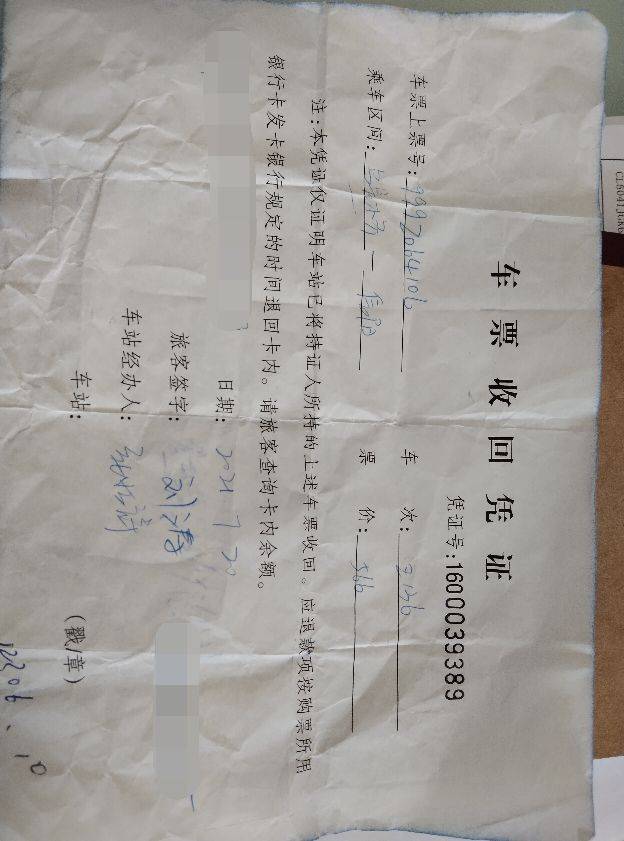 车票收回凭证
凭证号:1600039389
车票上票号: 9992064106 车 次:
乘车区间: 票 价: 566
注:本凭证仅证明车站已将持证人所持的上述车票收回。应退款项按购票所用
银行卡发卡银行规定的时间退回卡内。请旅客查询卡内余额。
日期: 2021 7 20
旅客签字:
车站经办人:
车站: (戳/章)
12306
CLS041JGK